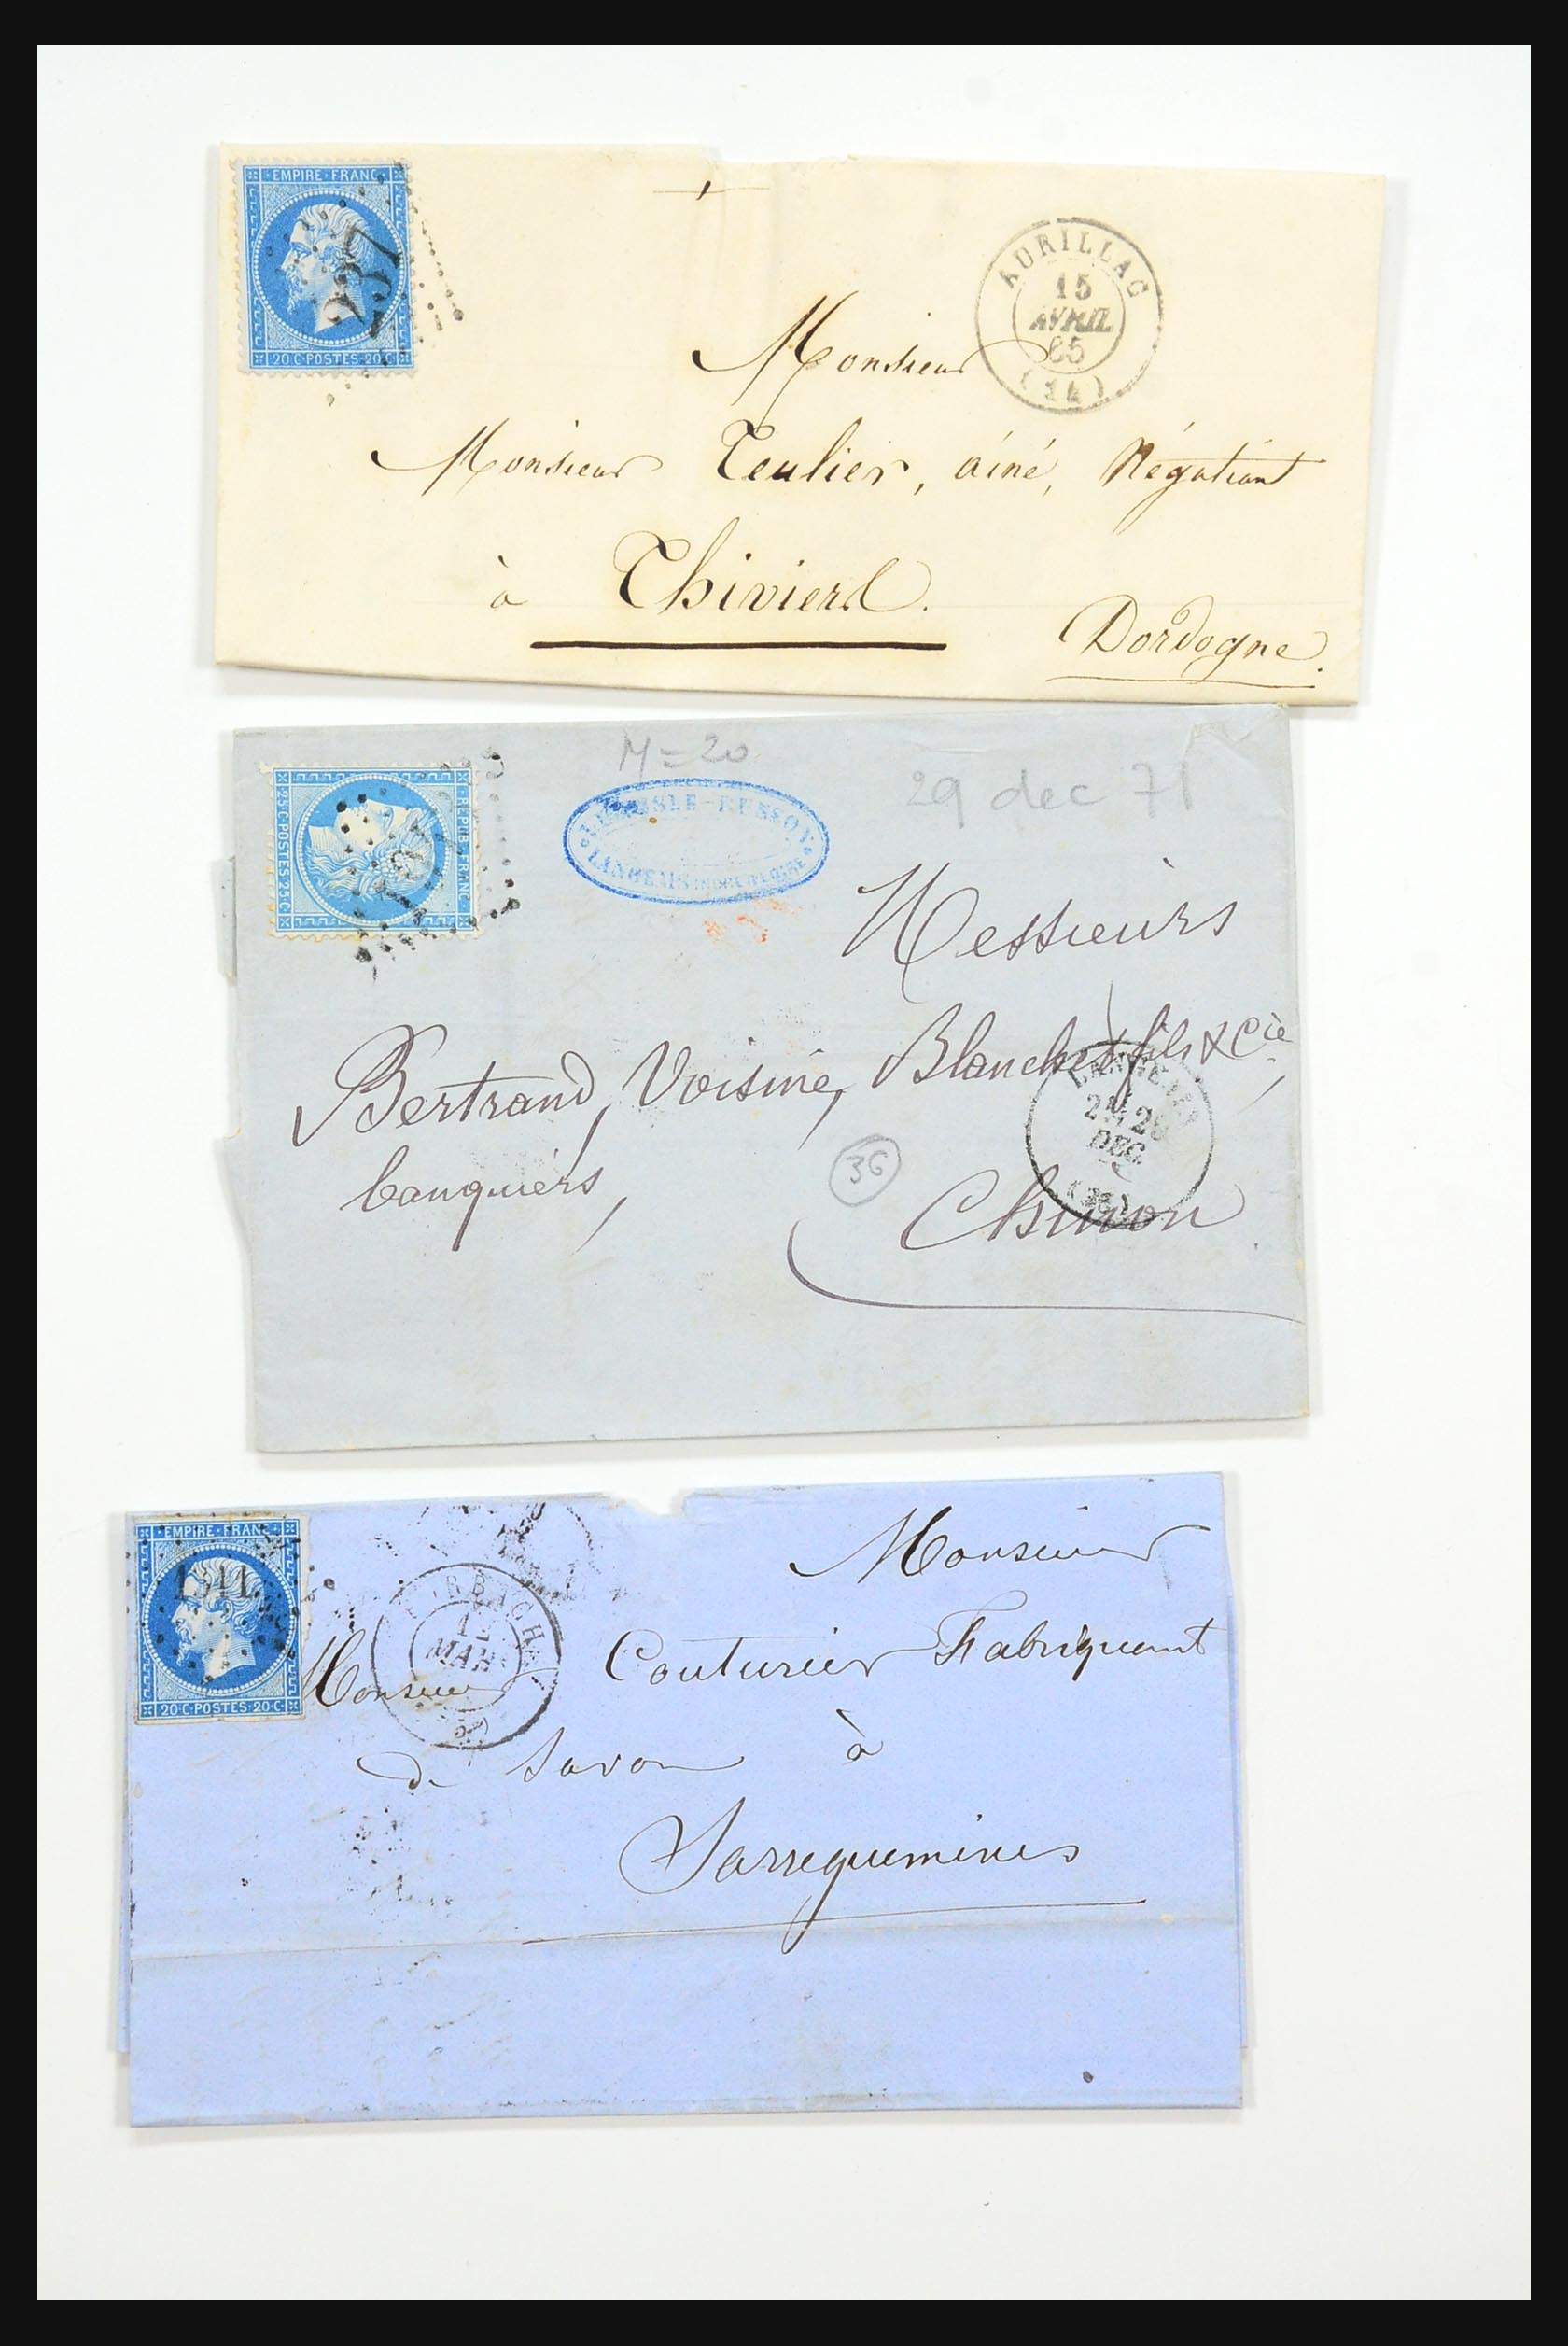 EMPIRE · FRANC
237
20·C·POSTES·20·C
AURILLAC
15
AVRIL
65
(14)
Monsieur
Monsieur Teulier, aîné, Négotiant
à Thiviers.
Dordogne.
M=20
29 dec 71
REPUB·FRANC
25·C·POSTES·25·C
RUSSON
LANGEAIS
Messieurs
Bertrand, Voisine, Blanchet fils & Cie,
banquiers,
36
LANGEAIS
DEC.
Chinon.
EMPIRE·FRANC
20·C·POSTES·20·C
FORBACH
Monsieur
Monsieur Couturier Fabriquant
de Savon à
Sarreguemines